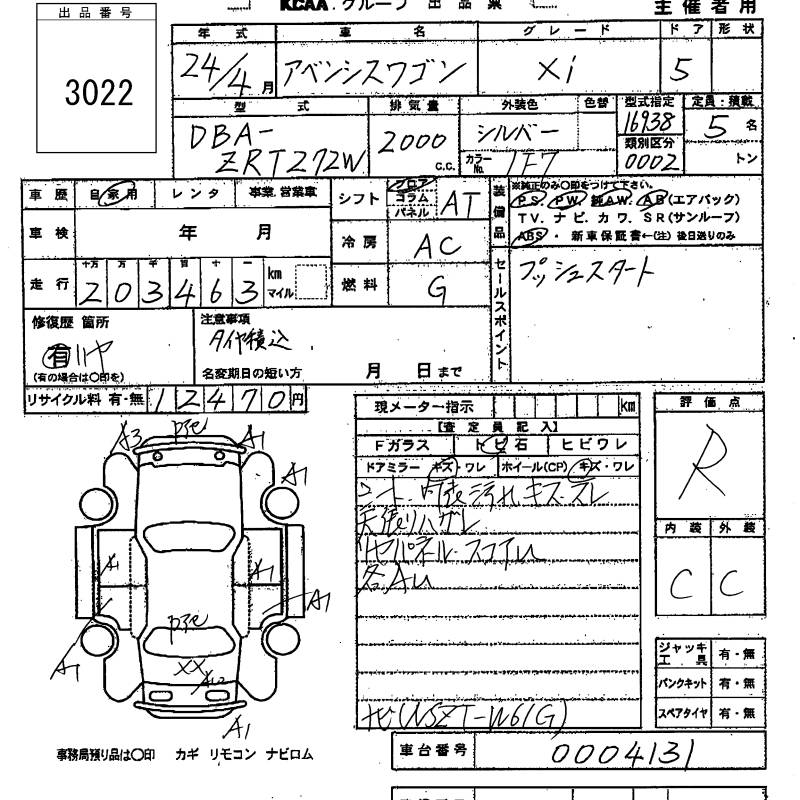 KCAA.グループ 出品票 主催者用
出品番号
3022
年式 車名 グレード ドア 形状
24/4月 アベンシスワゴン Xi 5
型式 排気量 外装色 色替 型式指定 定員・積載
DBA-
ZRT272W
2000 c.c.
シルバー
カラーNo. 1F7
16938
類別区分
0002
5名
トン
車歴 自家用 レンタ 事業.営業車
車検 年 月
走行 十万 万 千 百 十 一
203463 km マイル
シフト フロア コラム パネル AT
冷房 AC
燃料 G
装備品
※純正のみ〇印をつけて下さい。
PS. PW. 純AW. AB(エアバック)
TV. ナビ. カワ. SR(サンルーフ)
ABS・新車保証書←(注)後日送りのみ
セールスポイント
プッシュスタート
修復歴 箇所
有 リヤ
(有の場合は〇印を)
注意事項
タイヤ積込
名変期日の短い方 月 日まで
リサイクル料 有・無 12470円
現メーター指示 km
【査定員記入】
Fガラス トビ石 ヒビワレ
ドアミラー キズ・ワレ ホイール(CP) キズ・ワレ
シート・内張汚れキズ・スレ
天張りハガレ
リヤパネル・スコアU
各AU
ナビ(NSZT-W61G)
評価点
R
内装 外装
C C
ジャッキ工具 有・無
パンクネット 有・無
スペアタイヤ 有・無
A3 A1
A1
A1 A1
A1 A1
XX
AU2
A1
事務局預り品は〇印 カギ リモコン ナビロム
車台番号 0004131